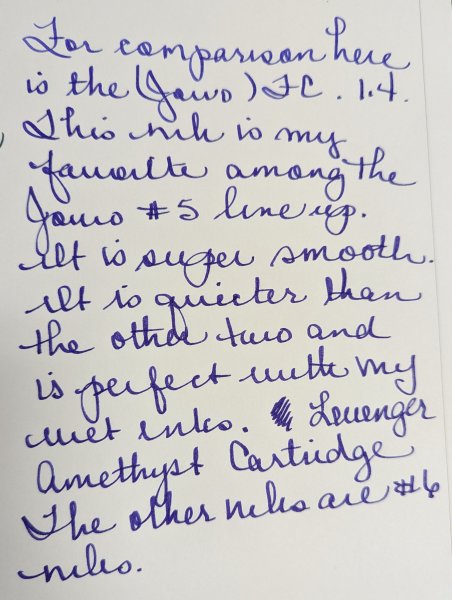 For comparison here
is the (Jowo) FC. 1.4.
This nib is my
favorite among the
Jowo #5 line up.
It is super smooth.
It is quieter than
the other two and
is perfect with my
wet inks. Levenger
Amethyst Cartridge
The other nibs are #6
nibs.